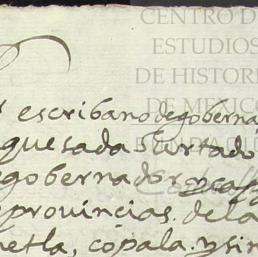 CENTRO D
ESTUDIOS
DE HISTORI
DE MEXICO
escribano degoberna
quesada Hurtado
egobernador ycap
provincias. dela
metla, copala. ysin